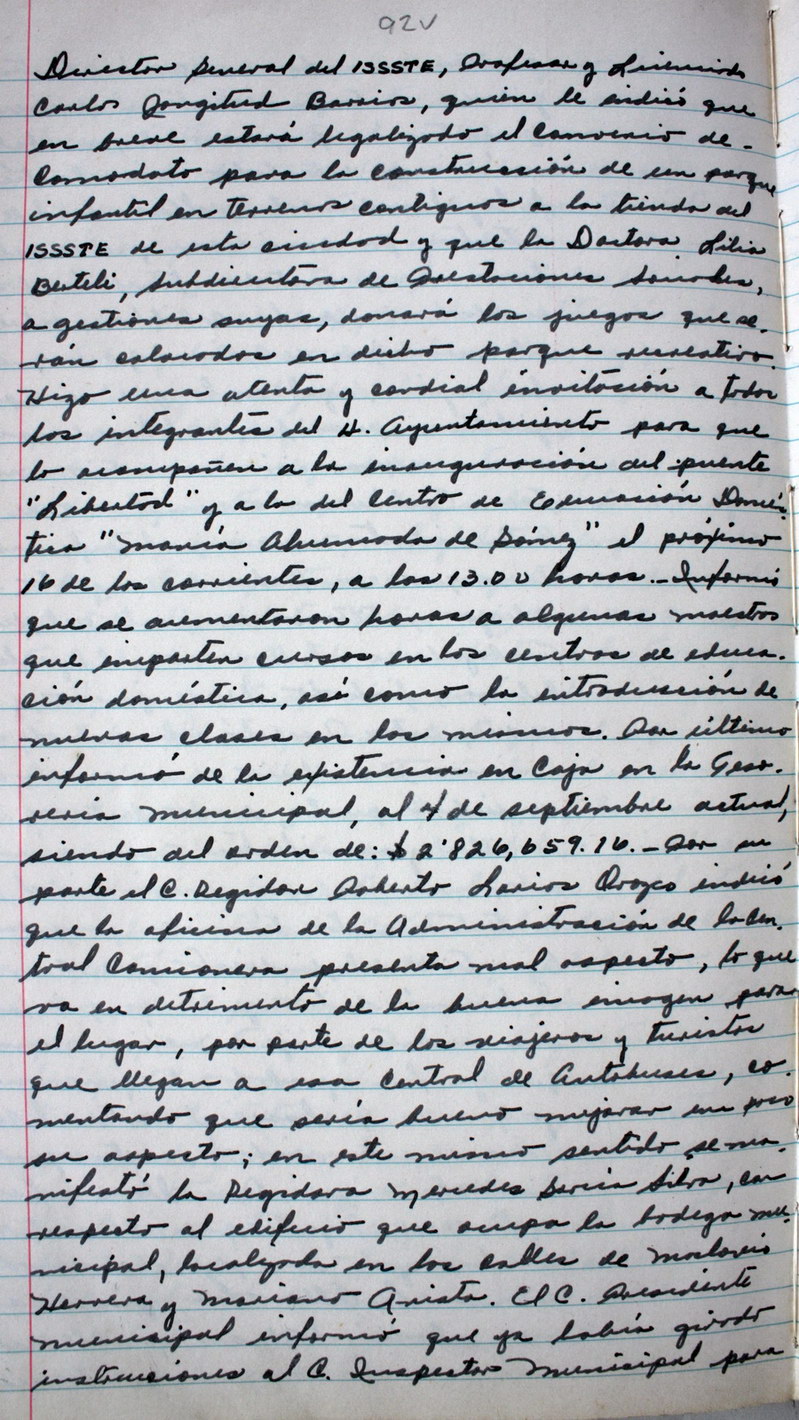 92v
Director General del ISSSTE, Profesor y Licenciado
Carlos Jongitud Barrios, quien le indicó que
en breve estará legalizado el convenio de-
Comodato para la construcción de un parque
infantil en terrenos contiguos a la tienda del
ISSSTE de esta ciudad y que la Doctora Lilia
Berteli, Subdirectora de Prestaciones Sociales,
a gestiones suyas, donará los juegos que se-
rán colocados en dicho parque recreativo.
Hizo una atenta y cordial invitación a todos
los integrantes del H. Ayuntamiento para que
lo acompañen a la inauguración del puente
"Libertad" y a la del Centro de Educación Domés-
tica "María Ahumada de Gómez" el próximo
16 de los corrientes, a las 13.00 horas.- Informó
que se aumentaron horas a algunas maestras
que imparten cursos en los centros de educa-
ción doméstica, así como la introducción de
nuevas clases en los mismos. Por último
informó de la existencia en Caja en la Teso-
rería Municipal, al 4 de septiembre actual,
siendo del orden de: $2'826,659.16.- Por su
parte el C. Regidor Roberto Larios Orozco indicó
que la oficina de la Administración de la Cen-
tral Camionera presenta mal aspecto, lo que
va en detrimento de la buena imagen para
el lugar, por parte de los viajeros y turistas
que llegan a esa Central de Autobuses, co-
mentando que sería bueno mejorar un poco
su aspecto; en este mismo sentido se ma-
nifestó la Regidora Mercedes García Silva, con
respecto al edificio que ocupa la bodega mu-
nicipal, localizada en las calles de Maclovio
Herrera y Mariano Arista. El C. Presidente
Municipal informó que ya había girado
instrucciones al C. Inspector Municipal para